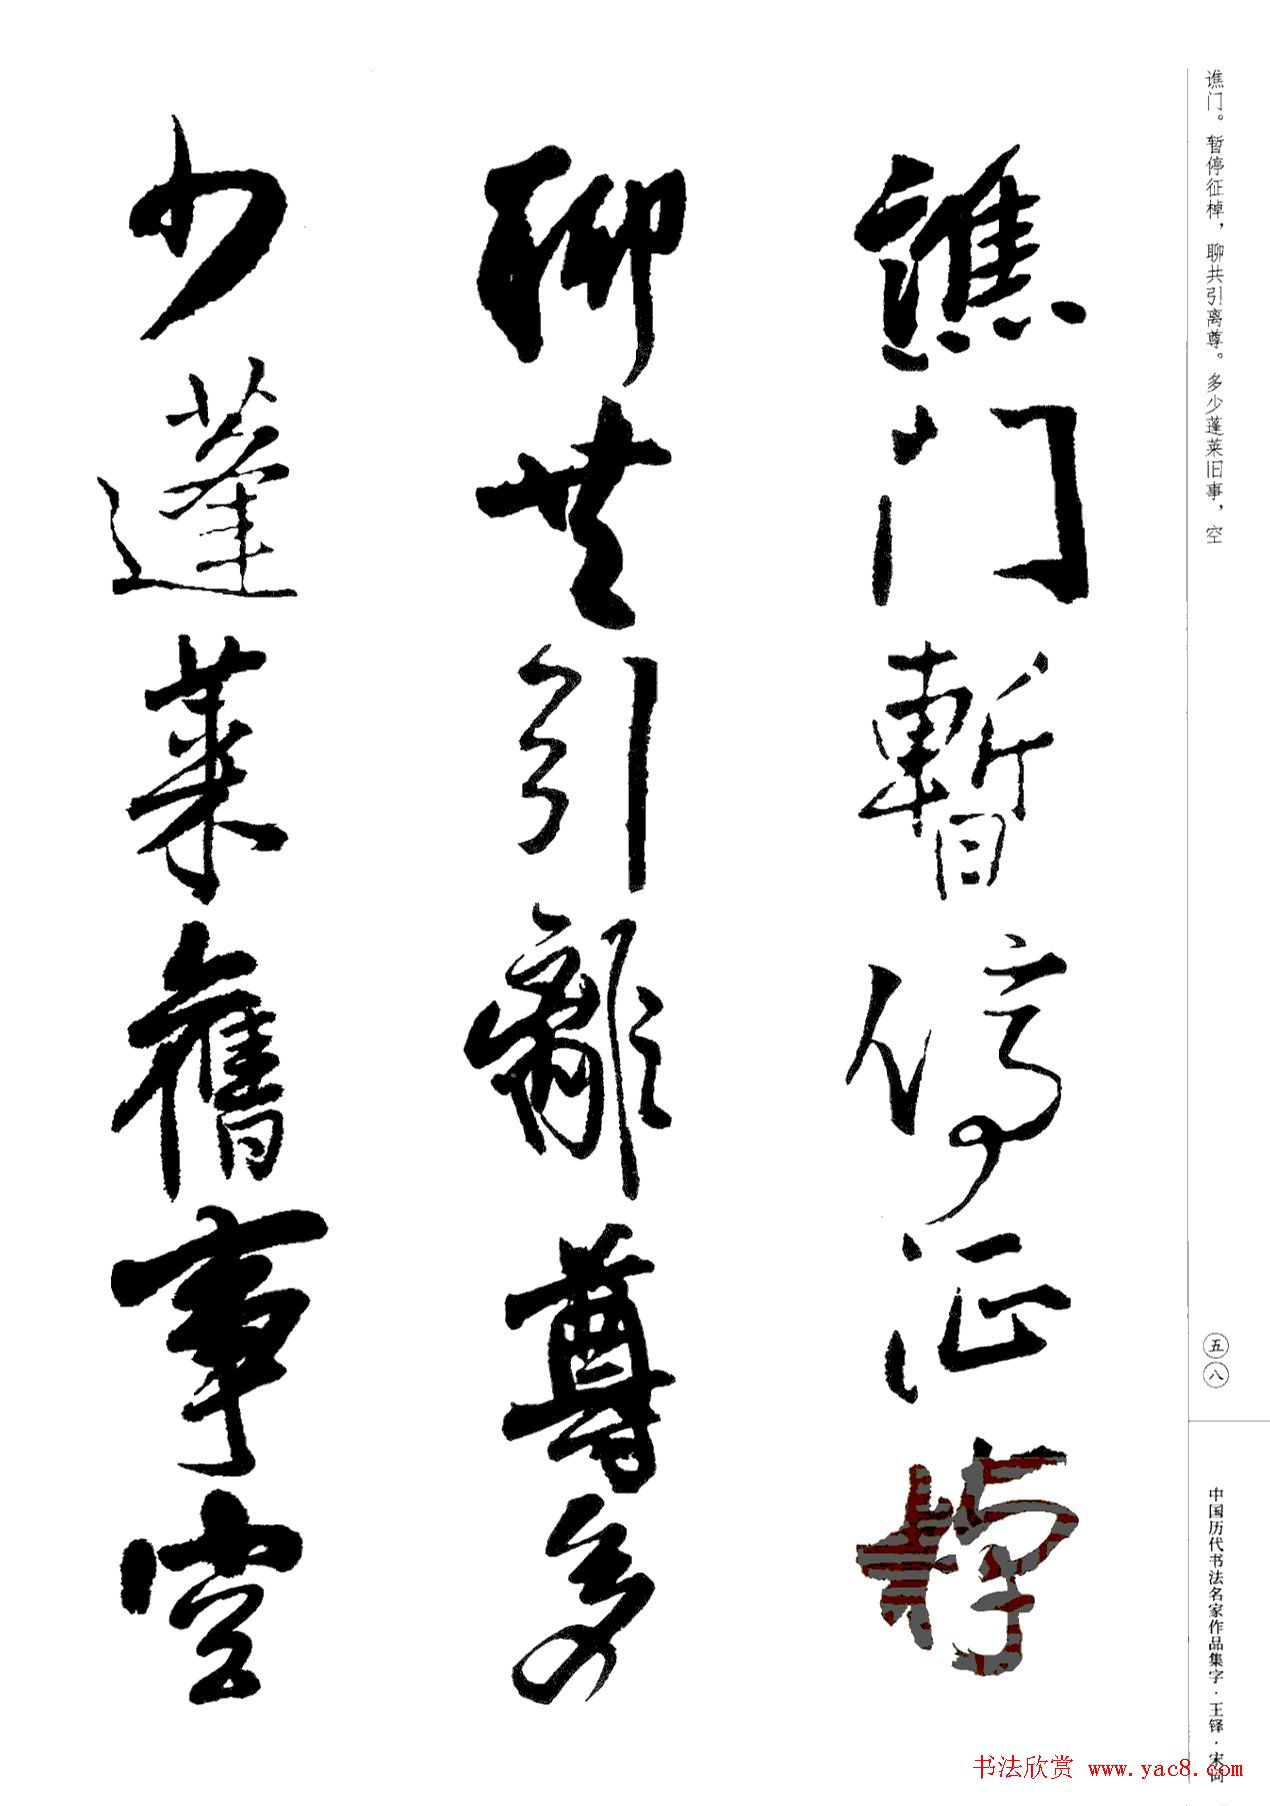 谯门。暂停征棹，聊共引离尊。多少蓬莱旧事，空
五八
中国历代书法名家作品集字·王铎·宋词
譙门暫停征棹
聊共引離尊多
少蓬萊舊事空
书法欣赏 www.yac8.com